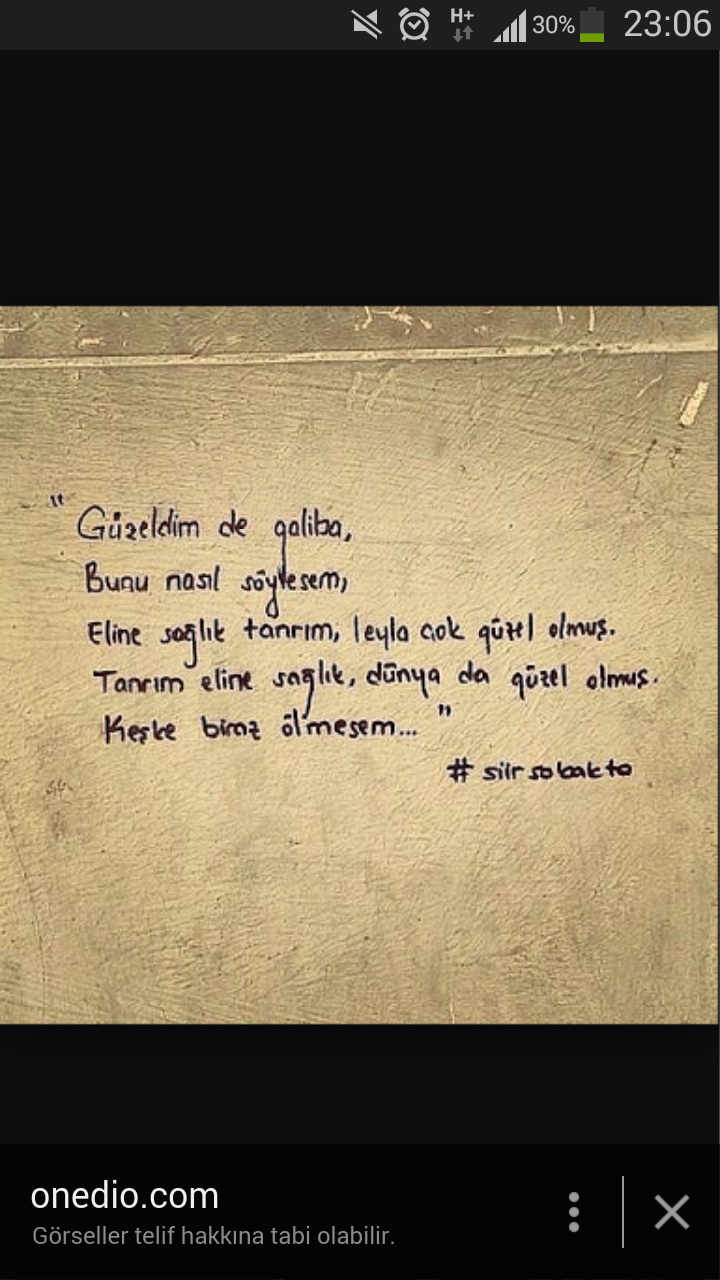 H+
30%
23:06
"Güzeldim de galiba,
Bunu nasıl söylesem,
Eline sağlık tanrım, leyla çok güzel olmuş.
Tanrım eline sağlık, dünya da güzel olmuş.
Keşke biraz ölmesem... "
# siirsokakta
onedio.com
Görseller telif hakkına tabi olabilir.